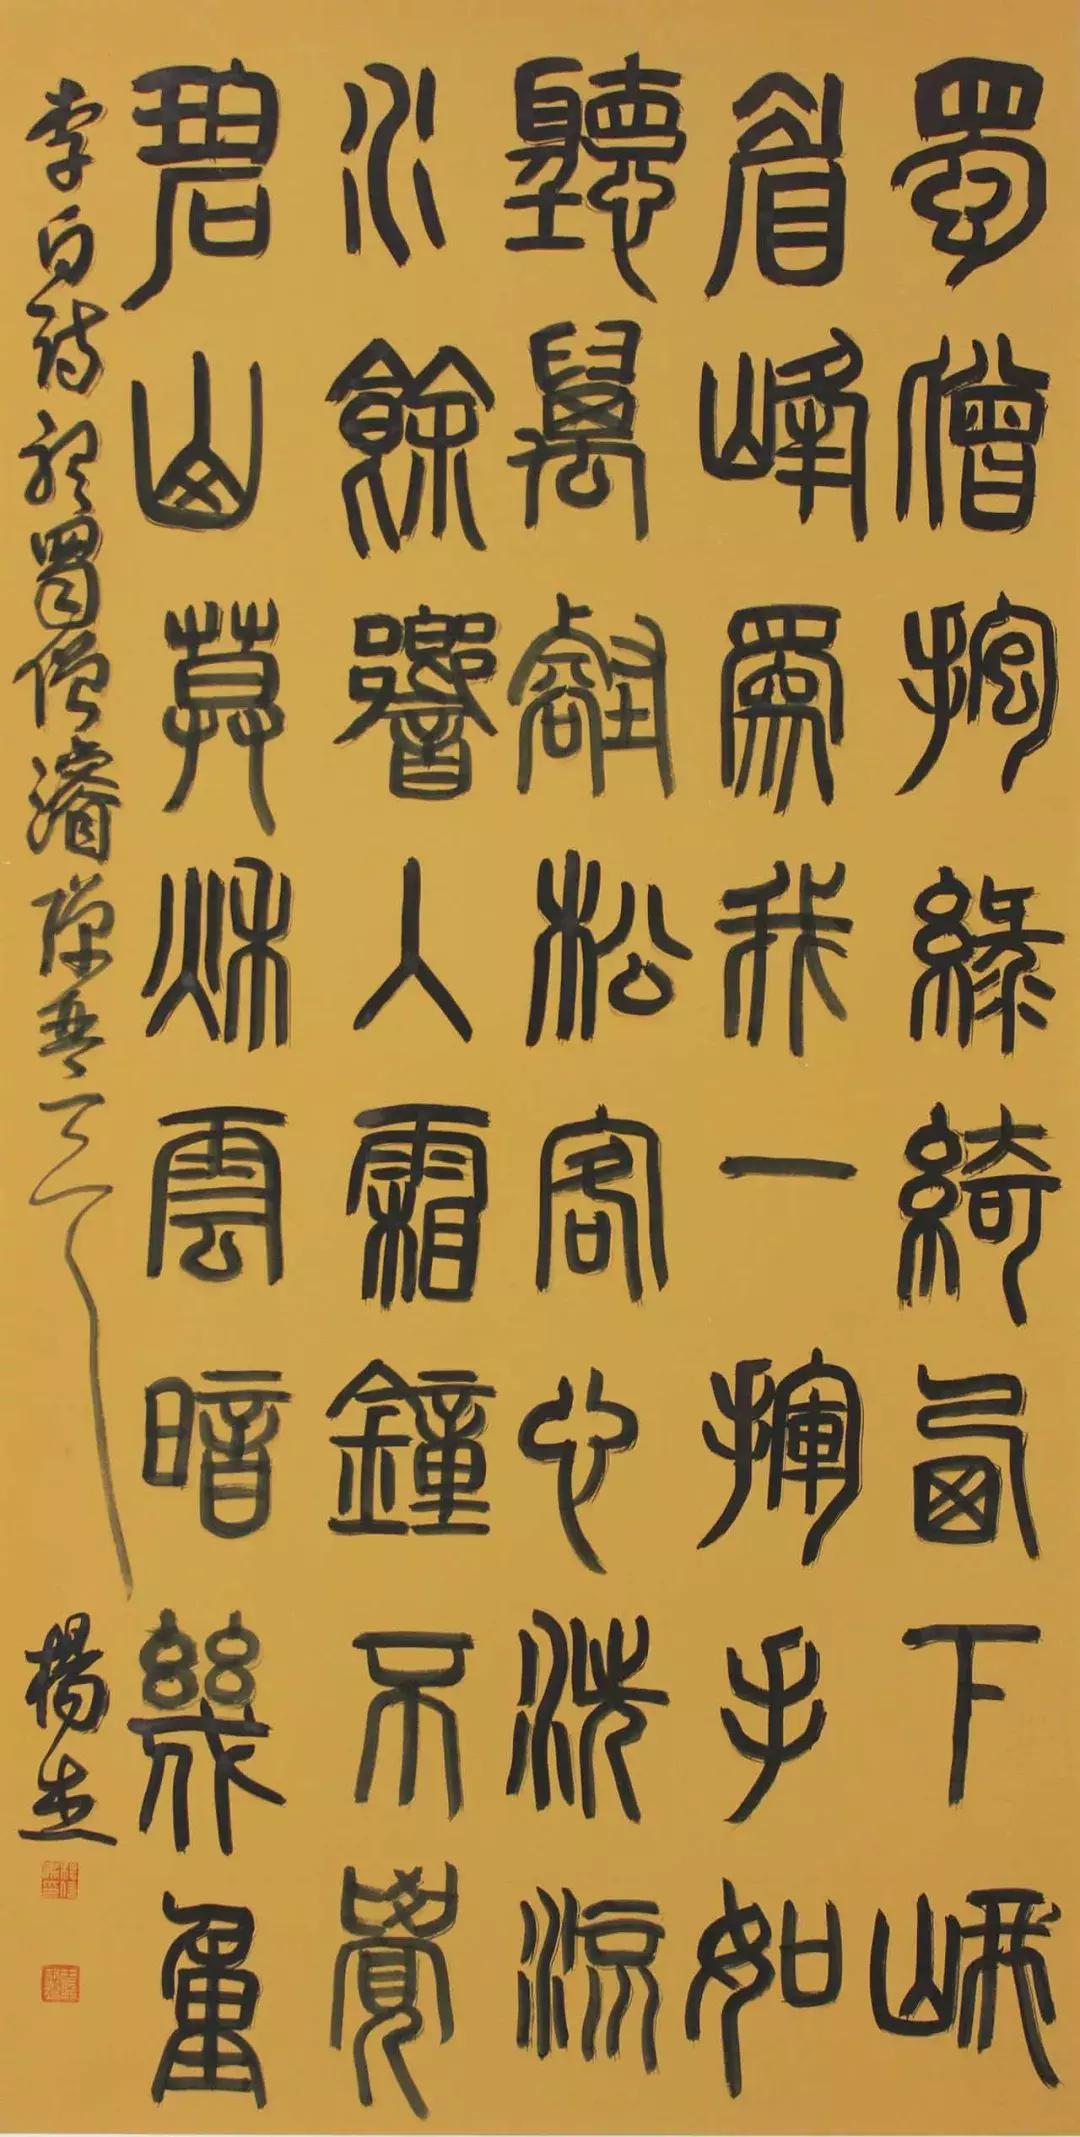 蜀僧抱綠綺西下峨
眉峰爲我一揮手如
聽萬壑松客心洗流
水餘響入霜鐘不覺
碧山莫秋雲暗幾重
李白詩聽蜀僧濬彈琴
楊杰